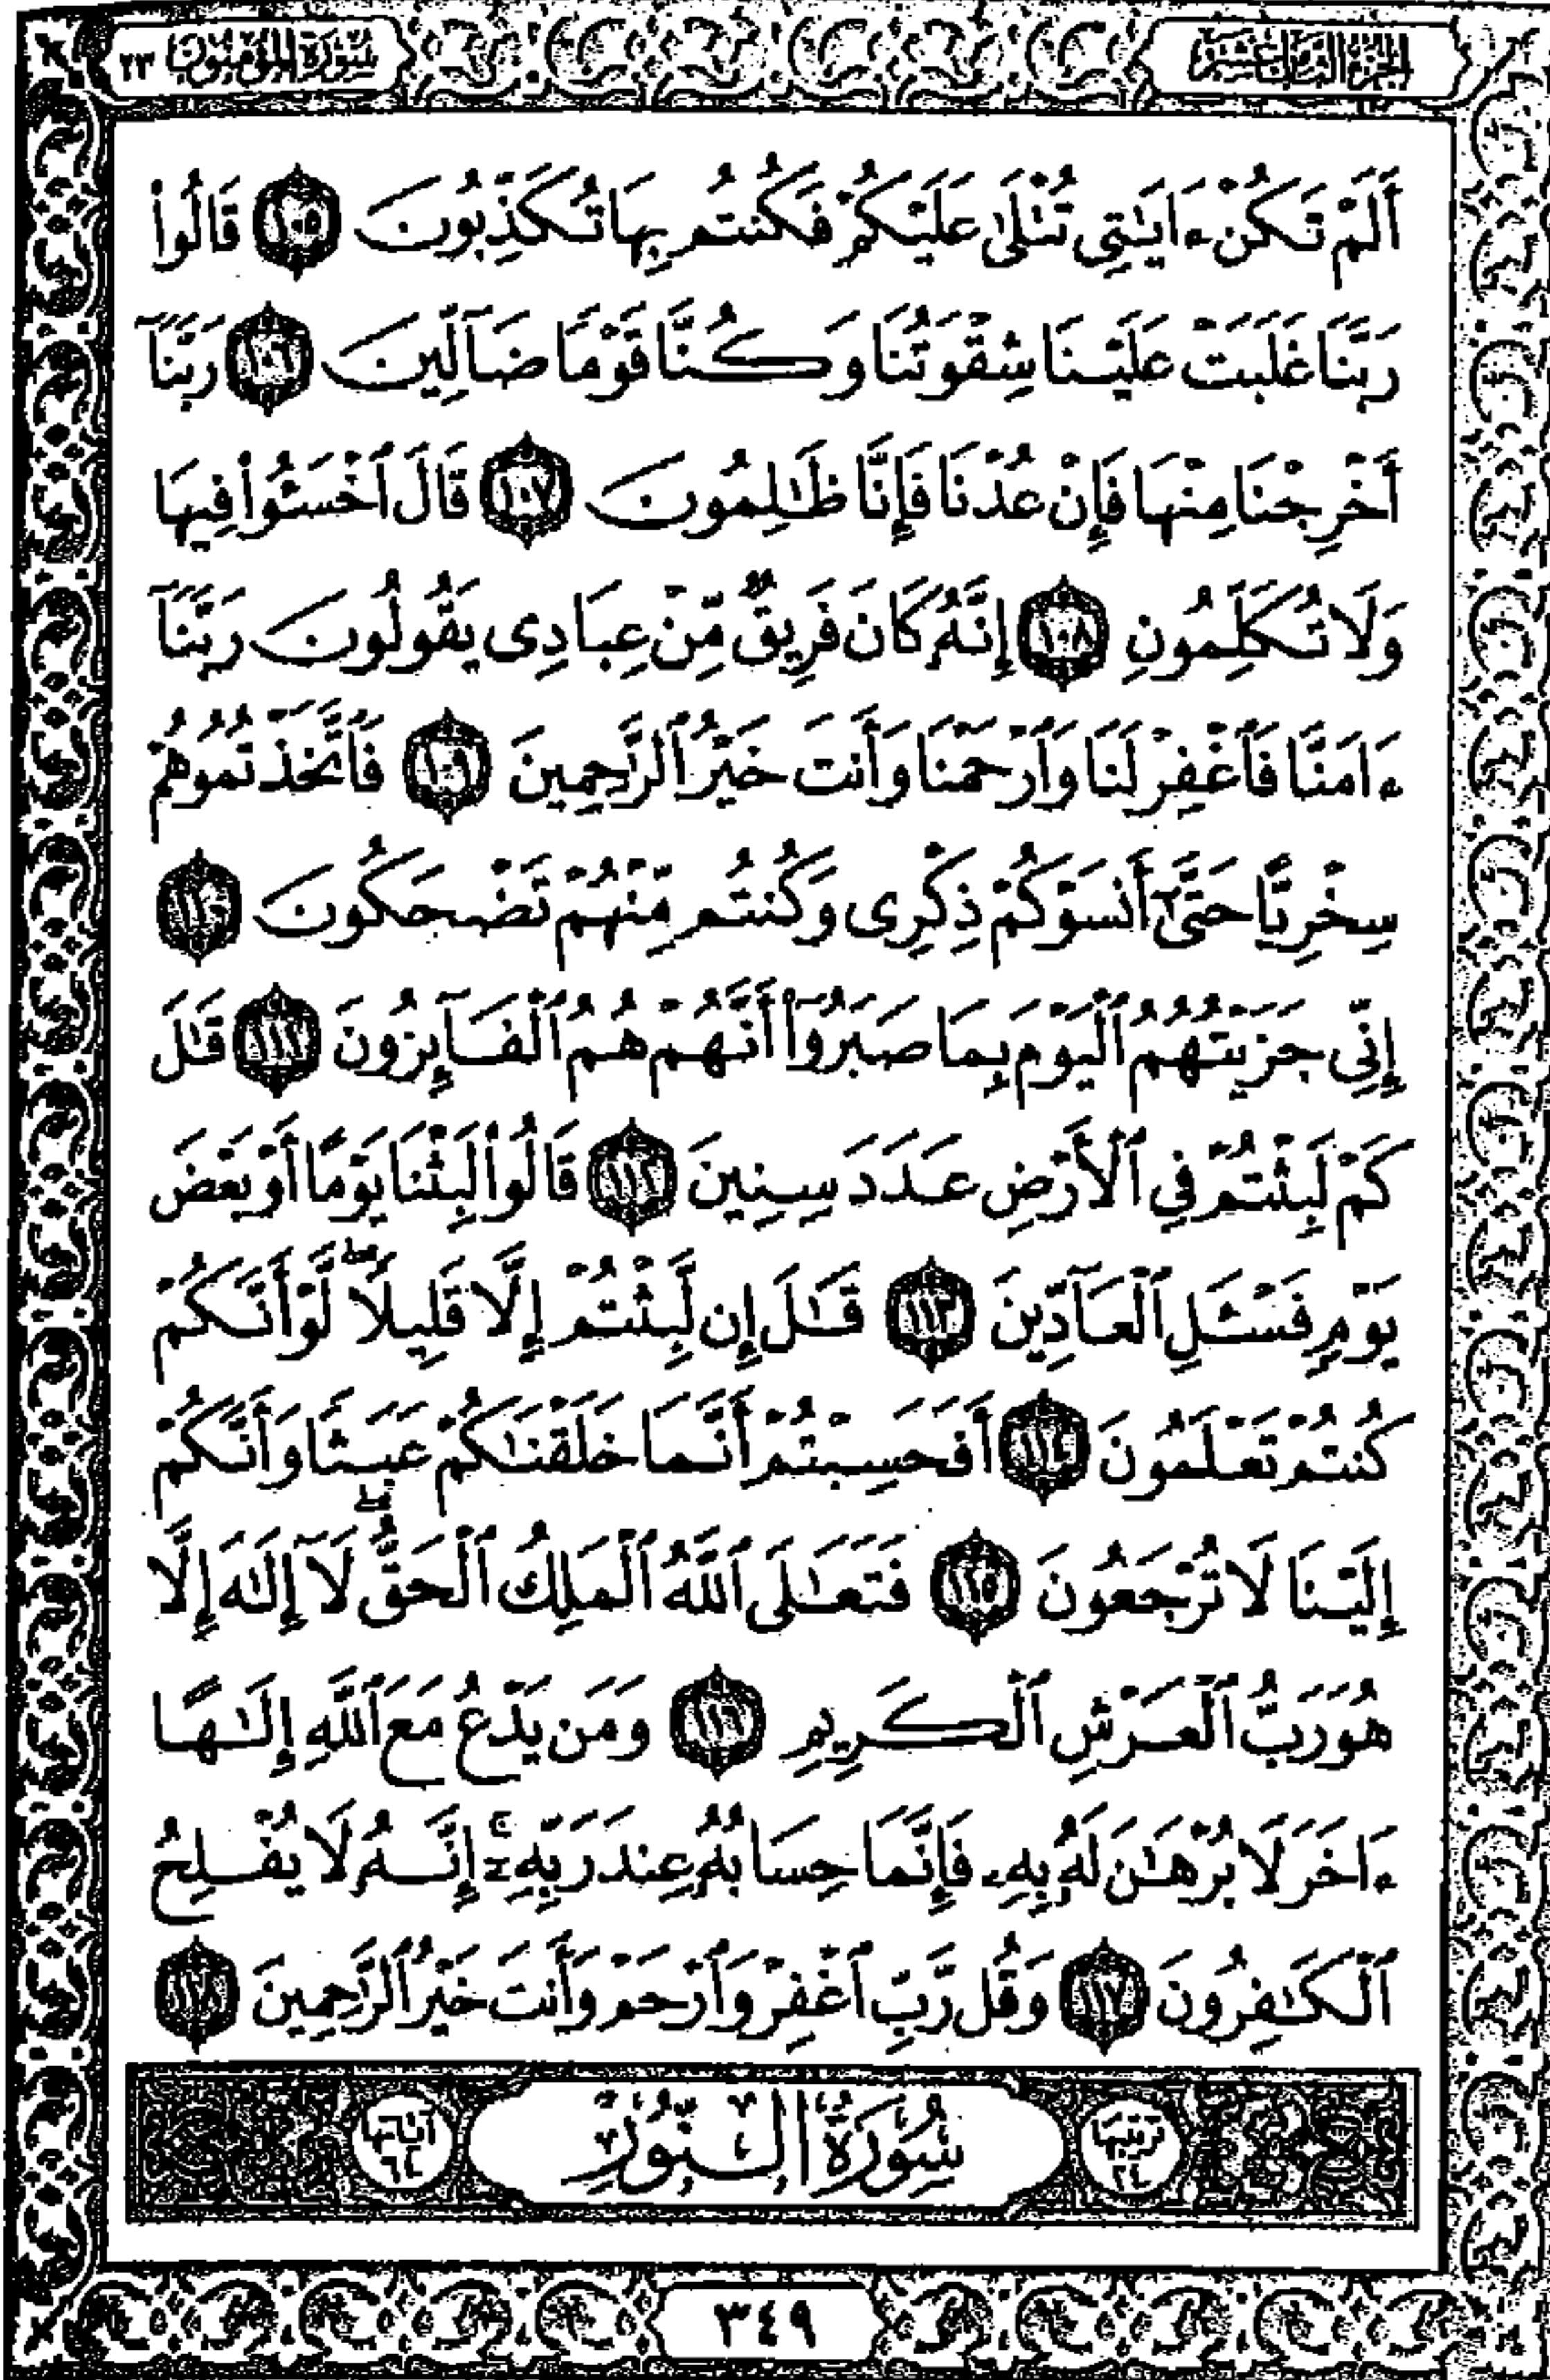 الجزء الثامن عشر
سورة المؤمنون ٢٣
أَلَمْ تَكُنْ ءَايَٰتِى تُتْلَىٰ عَلَيْكُمْ فَكُنتُم بِهَا تُكَذِّبُونَ ١٠٥ قَالُوا۟
رَبَّنَا غَلَبَتْ عَلَيْنَا شِقْوَتُنَا وَكُنَّا قَوْمًا ضَآلِّينَ ١٠٦ رَبَّنَآ
أَخْرِجْنَا مِنْهَا فَإِنْ عُدْنَا فَإِنَّا ظَٰلِمُونَ ١٠٧ قَالَ ٱخْسَـُٔوا۟ فِيهَا
وَلَا تُكَلِّمُونِ ١٠٨ إِنَّهُۥ كَانَ فَرِيقٌ مِّنْ عِبَادِى يَقُولُونَ رَبَّنَآ
ءَامَنَّا فَٱغْفِرْ لَنَا وَٱرْحَمْنَا وَأَنتَ خَيْرُ ٱلرَّٰحِمِينَ ١٠٩ فَٱتَّخَذْتُمُوهُمْ
سِخْرِيًّا حَتَّىٰٓ أَنسَوْكُمْ ذِكْرِى وَكُنتُم مِّنْهُمْ تَضْحَكُونَ ١١٠
إِنِّى جَزَيْتُهُمُ ٱلْيَوْمَ بِمَا صَبَرُوٓا۟ أَنَّهُمْ هُمُ ٱلْفَآئِزُونَ ١١١ قَٰلَ
كَمْ لَبِثْتُمْ فِى ٱلْأَرْضِ عَدَدَ سِنِينَ ١١٢ قَالُوا۟ لَبِثْنَا يَوْمًا أَوْ بَعْضَ
يَوْمٍ فَسْـَٔلِ ٱلْعَآدِّينَ ١١٣ قَٰلَ إِن لَّبِثْتُمْ إِلَّا قَلِيلًا ۖ لَّوْ أَنَّكُمْ
كُنتُمْ تَعْلَمُونَ ١١٤ أَفَحَسِبْتُمْ أَنَّمَا خَلَقْنَٰكُمْ عَبَثًا وَأَنَّكُمْ
إِلَيْنَا لَا تُرْجَعُونَ ١١٥ فَتَعَٰلَى ٱللَّهُ ٱلْمَلِكُ ٱلْحَقُّ ۖ لَآ إِلَٰهَ إِلَّا
هُوَ رَبُّ ٱلْعَرْشِ ٱلْكَرِيمِ ١١٦ وَمَن يَدْعُ مَعَ ٱللَّهِ إِلَٰهًا
ءَاخَرَ لَا بُرْهَٰنَ لَهُۥ بِهِۦ فَإِنَّمَا حِسَابُهُۥ عِندَ رَبِّهِۦٓ ۚ إِنَّهُۥ لَا يُفْلِحُ
ٱلْكَٰفِرُونَ ١١٧ وَقُل رَّبِّ ٱغْفِرْ وَٱرْحَمْ وَأَنتَ خَيْرُ ٱلرَّٰحِمِينَ ١١٨
ترتيبها ٢٤ سُورَةُ النُّورِ آياتها ٦٤
٣٤٩